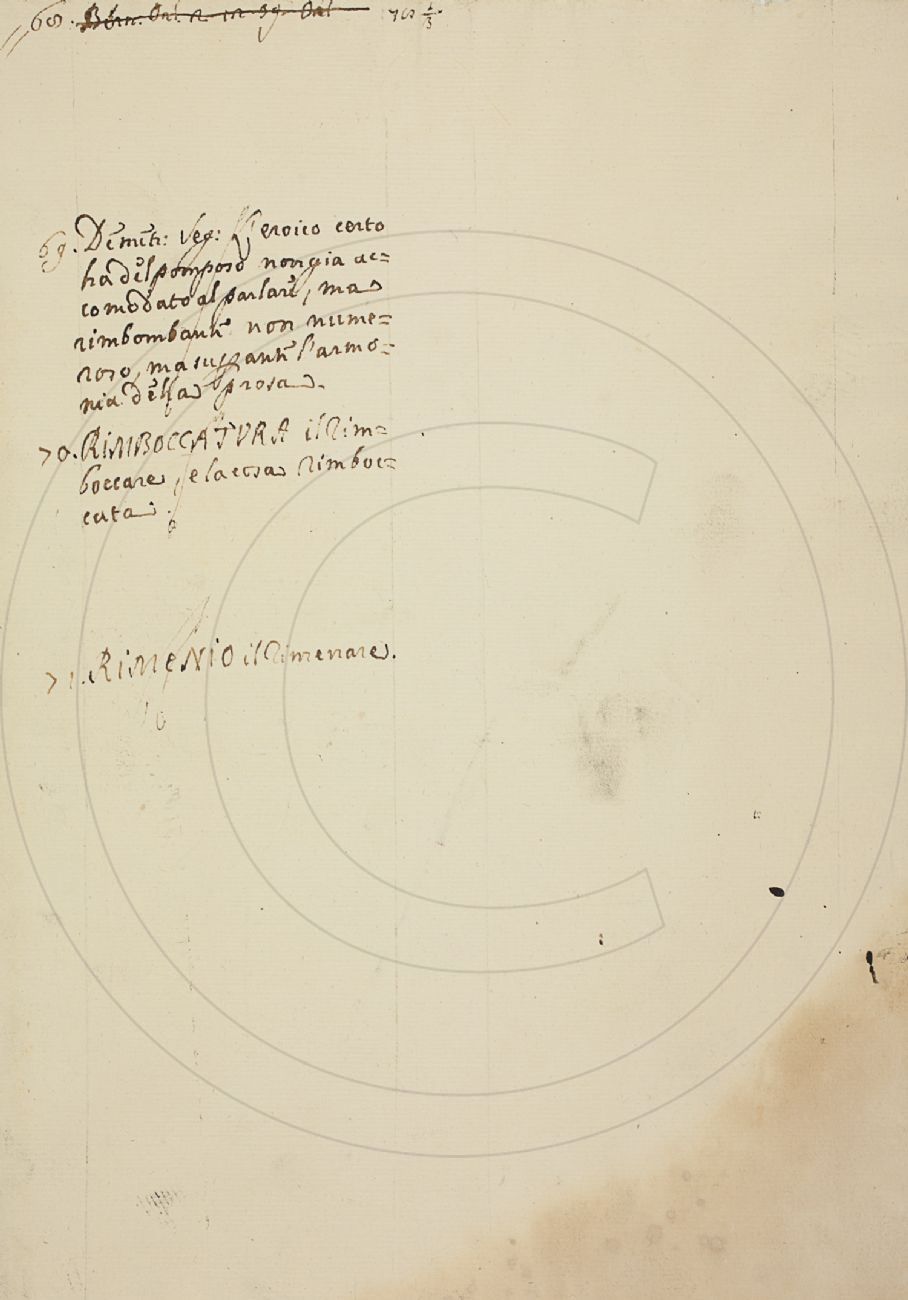 68. Bern. Orl. 2. 12 39. Orl 70 1/3
69. Demetr: Seg: L'eroico certo
ha del pomposo non gia ac=
comodato al parlare, ma
rimbombante non nume=
roso, ma l'armo=
nia della prosa.
70. RIMBOCCATVRA il Rim=
boccare, e la cosa Rimboc=
cata.
71. RiMeNiO il Rimenare.